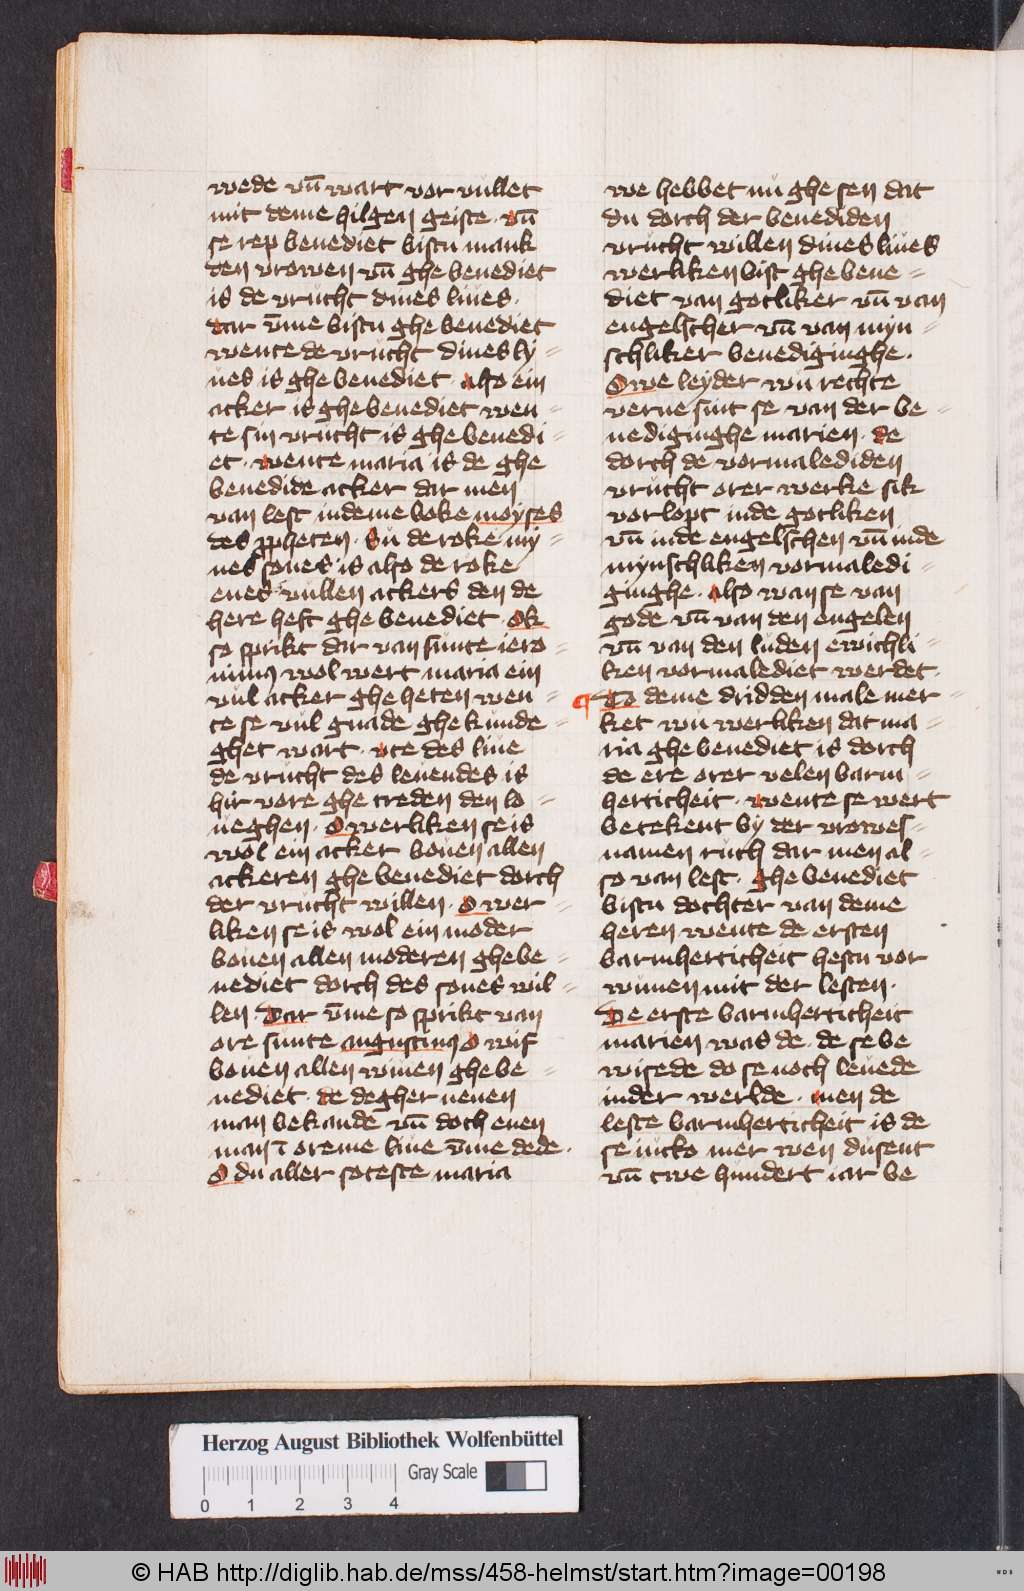 wede vn̄ wart vor vullet
mit deme hilgen geiste · vn̄
se rep benediet bistu mank
den vrowen vn̄ ghe benediet
is de vrucht dines liues ·
dar v̄me bistu ghe benediet
wente de vrucht dines ly =
ues is ghe benediet · also ein
acker is ghe benediet wen =
te sin vrucht is ghe benedi =
et · wente maria is de ghe
benedide acker dar men
van lest indeme boke moyses
des ppheten · Su de roke my =
nes sones is also de roke
enes vullen ackers den de
here heft ghe benediet · Ok
so sprikt dar van sunte iero =
nimꝯ wol wert maria ein
vul acker ghe heten wen =
te se vul gnade ghe kunde =
ghet wart · vte des liue
de vrucht des leuendes is
hir vore ghe treden den lo =
ueghen · O werliken se is
wol ein acker bouen allen
ackeren ghe benediet dorch
der vrucht willen · O wer =
liken se is wol ein moder
bouen allen moderen ghe be =
nediet dorch des sones wil =
len · Dar v̄me so sprikt van
ore sunte augustinꝯ O wif
bouen allen wiuen ghe be =
nediet · de degher nenen
man bekande vn̄ doch enen
man ī oreme liue v̄me dede ·
O du aller soteste maria
we hebbet nu ghe sen dat
du dorch der benediden
vrucht willen dines liues
werliken bist ghe bene =
diet van gotliker vn̄ van
engelscher vn̄ van myn =
schliker benediginghe ·
O we leyder wu rechte
verne sint se van der be =
nediginghe marien · de
dorch de vormalediden
vrucht orer werke sik
vorlopt inde gotliken
vn̄ inde engelschen vn̄ inde
mynschliken vormaledi =
ginghe · also wan se van
gode vn̄ van den engelen
vn̄ van den luden ewichli =
ken vormalediet werdet ·
¶ To deme dridden male mer =
ket wu werliken dat ma =
ria ghe benediet is dorch
de ere orer velen barm =
herticheit · wente se wert
betekent by der vrowes =
namen ruth dar men al =
so van lest · ghe benediet
bistu dochter van deme
heren wente de ersten
barmherticheit hestu vor
wunen mit der lesten ·
De erste barmherticheit
marien was de · de se be
wisede do se noch leuede
inder werlde · men de
leste barmherticheit is de
se iucko mer wen dusent
vn̄ twe hundert iar be
Herzog August Bibliothek Wolfenbüttel
Gray Scale
0 1 2 3 4
© HAB http://diglib.hab.de/mss/458-helmst/start.htm?image=00198